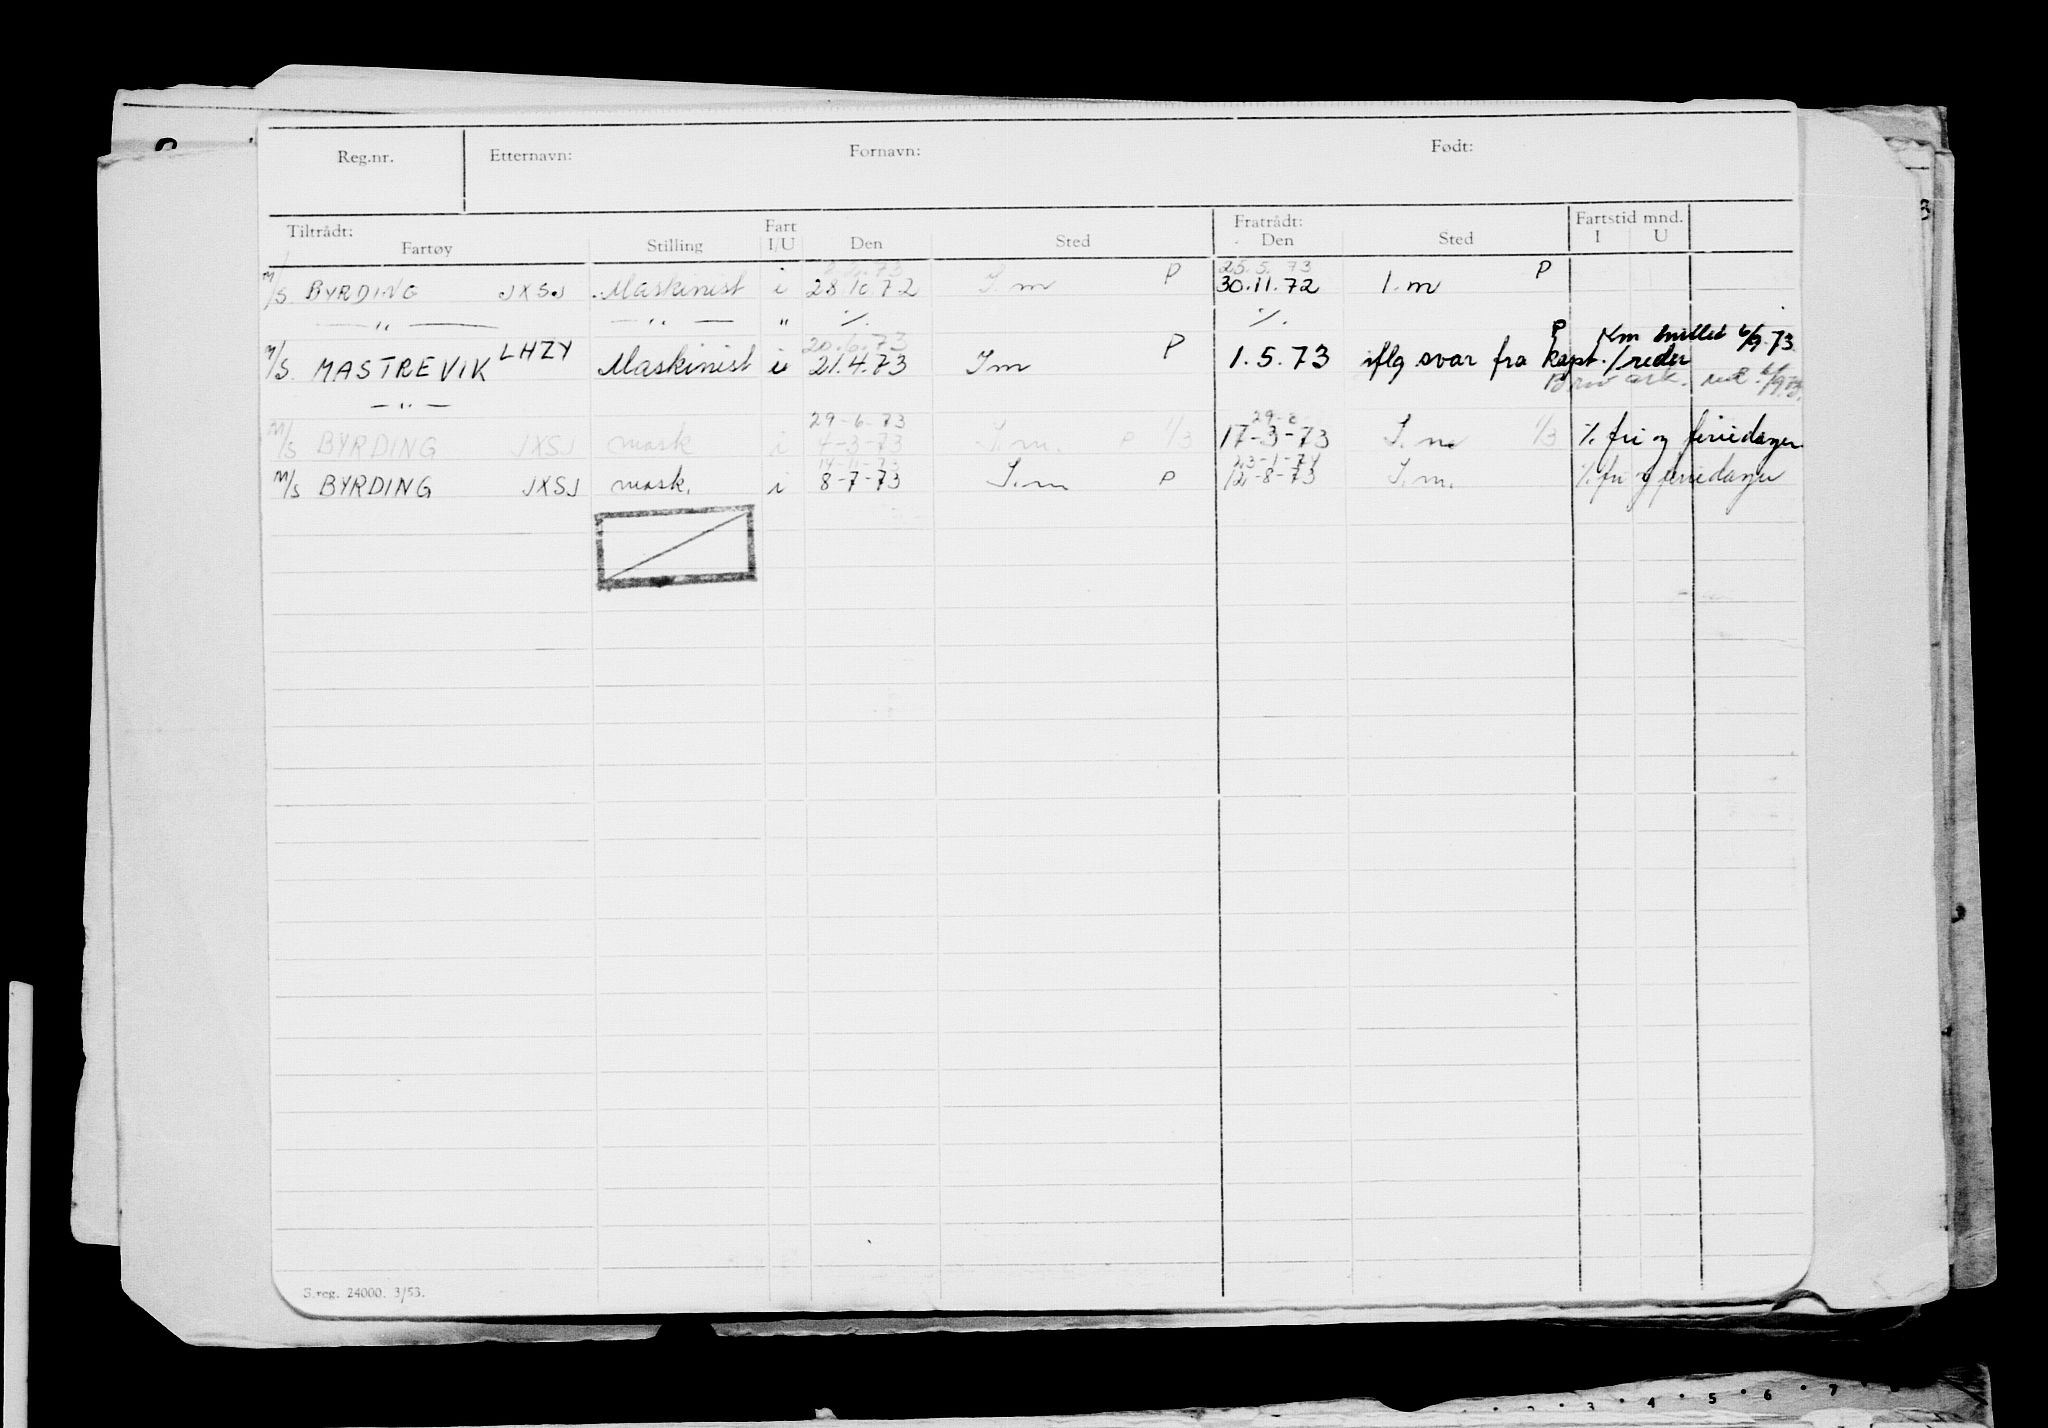 Reg.nr. Etternavn: Fornavn: Født:
Tiltrådt: Fart Fratrådt: Fartstid mnd.
Fartøy Stilling I/U Den Sted Den Sted I U
73 25.5.73
M/S BYRDING JXSJ Maskinist i 28.10.72 I.m P 30.11.72 I.m P
— " — — " — " ٪. ٪.
20.6.73 P 6/9.73
M/S. MASTREVIK LHZY Maskinist i 21.4.73 Im P 1.5.73 iflg svar fra kapt./reder
— " —
29-6-73 29-8-
M/S BYRDING JXSJ mask i 4-3-73 I.m. P 1/3 17-3-73 I.m 1/3 ٪ fri og feriedager
14-11-73 23-1-74
M/S BYRDING JXSJ mask. i 8-7-73 I.m P 12-8-73 I.m. ٪ fri og feriedager
S.reg. 24000. 3/53.
3
2 3 4 5 6 7